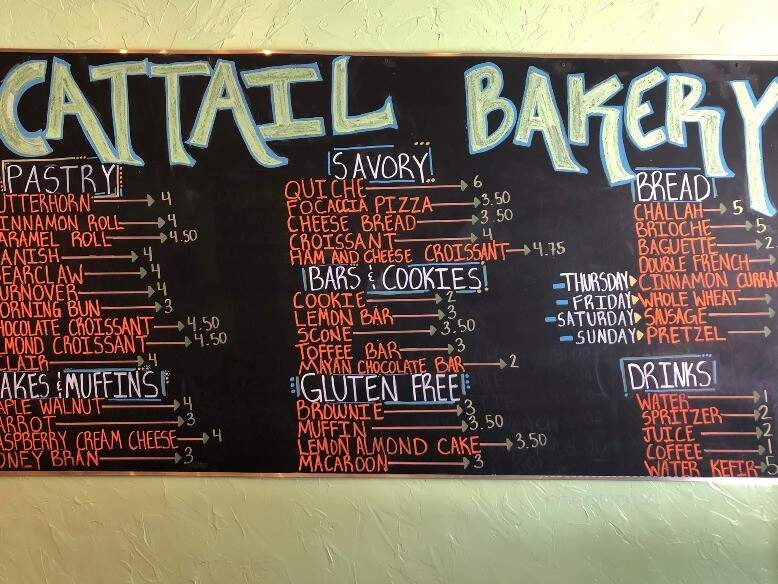 CATTAIL BAKERY
PASTRY
UTTERHORN 4
INNAMON ROLL 4
ARAMEL ROLL 4.50
ANISH 4
EARCLAW 4
URNOVER 4
ORNING BUN 3
HOCOLATE CROISSANT 4.50
LMOND CROISSANT 4.50
CLAIR 4
AKES & MUFFINS
APLE WALNUT 4
ARROT 3
ASPBERRY CREAM CHEESE 4
ONEY BRAN 3
SAVORY
QUICHE 6
FOCACCIA PIZZA 3.50
CHEESE BREAD 3.50
CROISSANT 4
HAM AND CHEESE CROISSANT 4.75
BARS & COOKIES
COOKIE 2
LEMON BAR 3
SCONE 3.50
TOFFEE BAR 3
MAYAN CHOCOLATE BAR 2
GLUTEN FREE
BROWNIE 3
MUFFIN 3.50
LEMON ALMOND CAKE 3.50
MACAROON 3
BREAD
CHALLAH 5
BRIOCHE 5
BAGUETTE 2
DOUBLE FRENCH
THURSDAY CINNAMON CURRA
FRIDAY WHOLE WHEAT
SATURDAY SAUSAGE
SUNDAY PRETZEL
DRINKS
WATER 1
SPRITZER 2
JUICE 2
COFFEE 1
WATER KEFIR 5